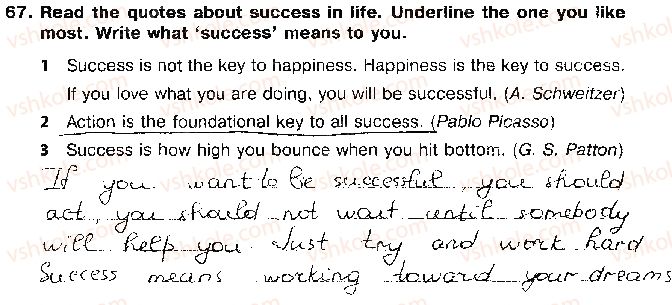 67. Read the quotes about success in life. Underline the one you like
most. Write what ‘success’ means to you.
1 Success is not the key to happiness. Happiness is the key to success.
If you love what you are doing, you will be successful. (A. Schweitzer)
2 Action is the foundational key to all success. (Pablo Picasso)
3 Success is how high you bounce when you hit bottom. (G. S. Patton)
If you want to be successful you should
act, you should not wait until somebody
will help you Just try and work hard
Success means working toward your dreams